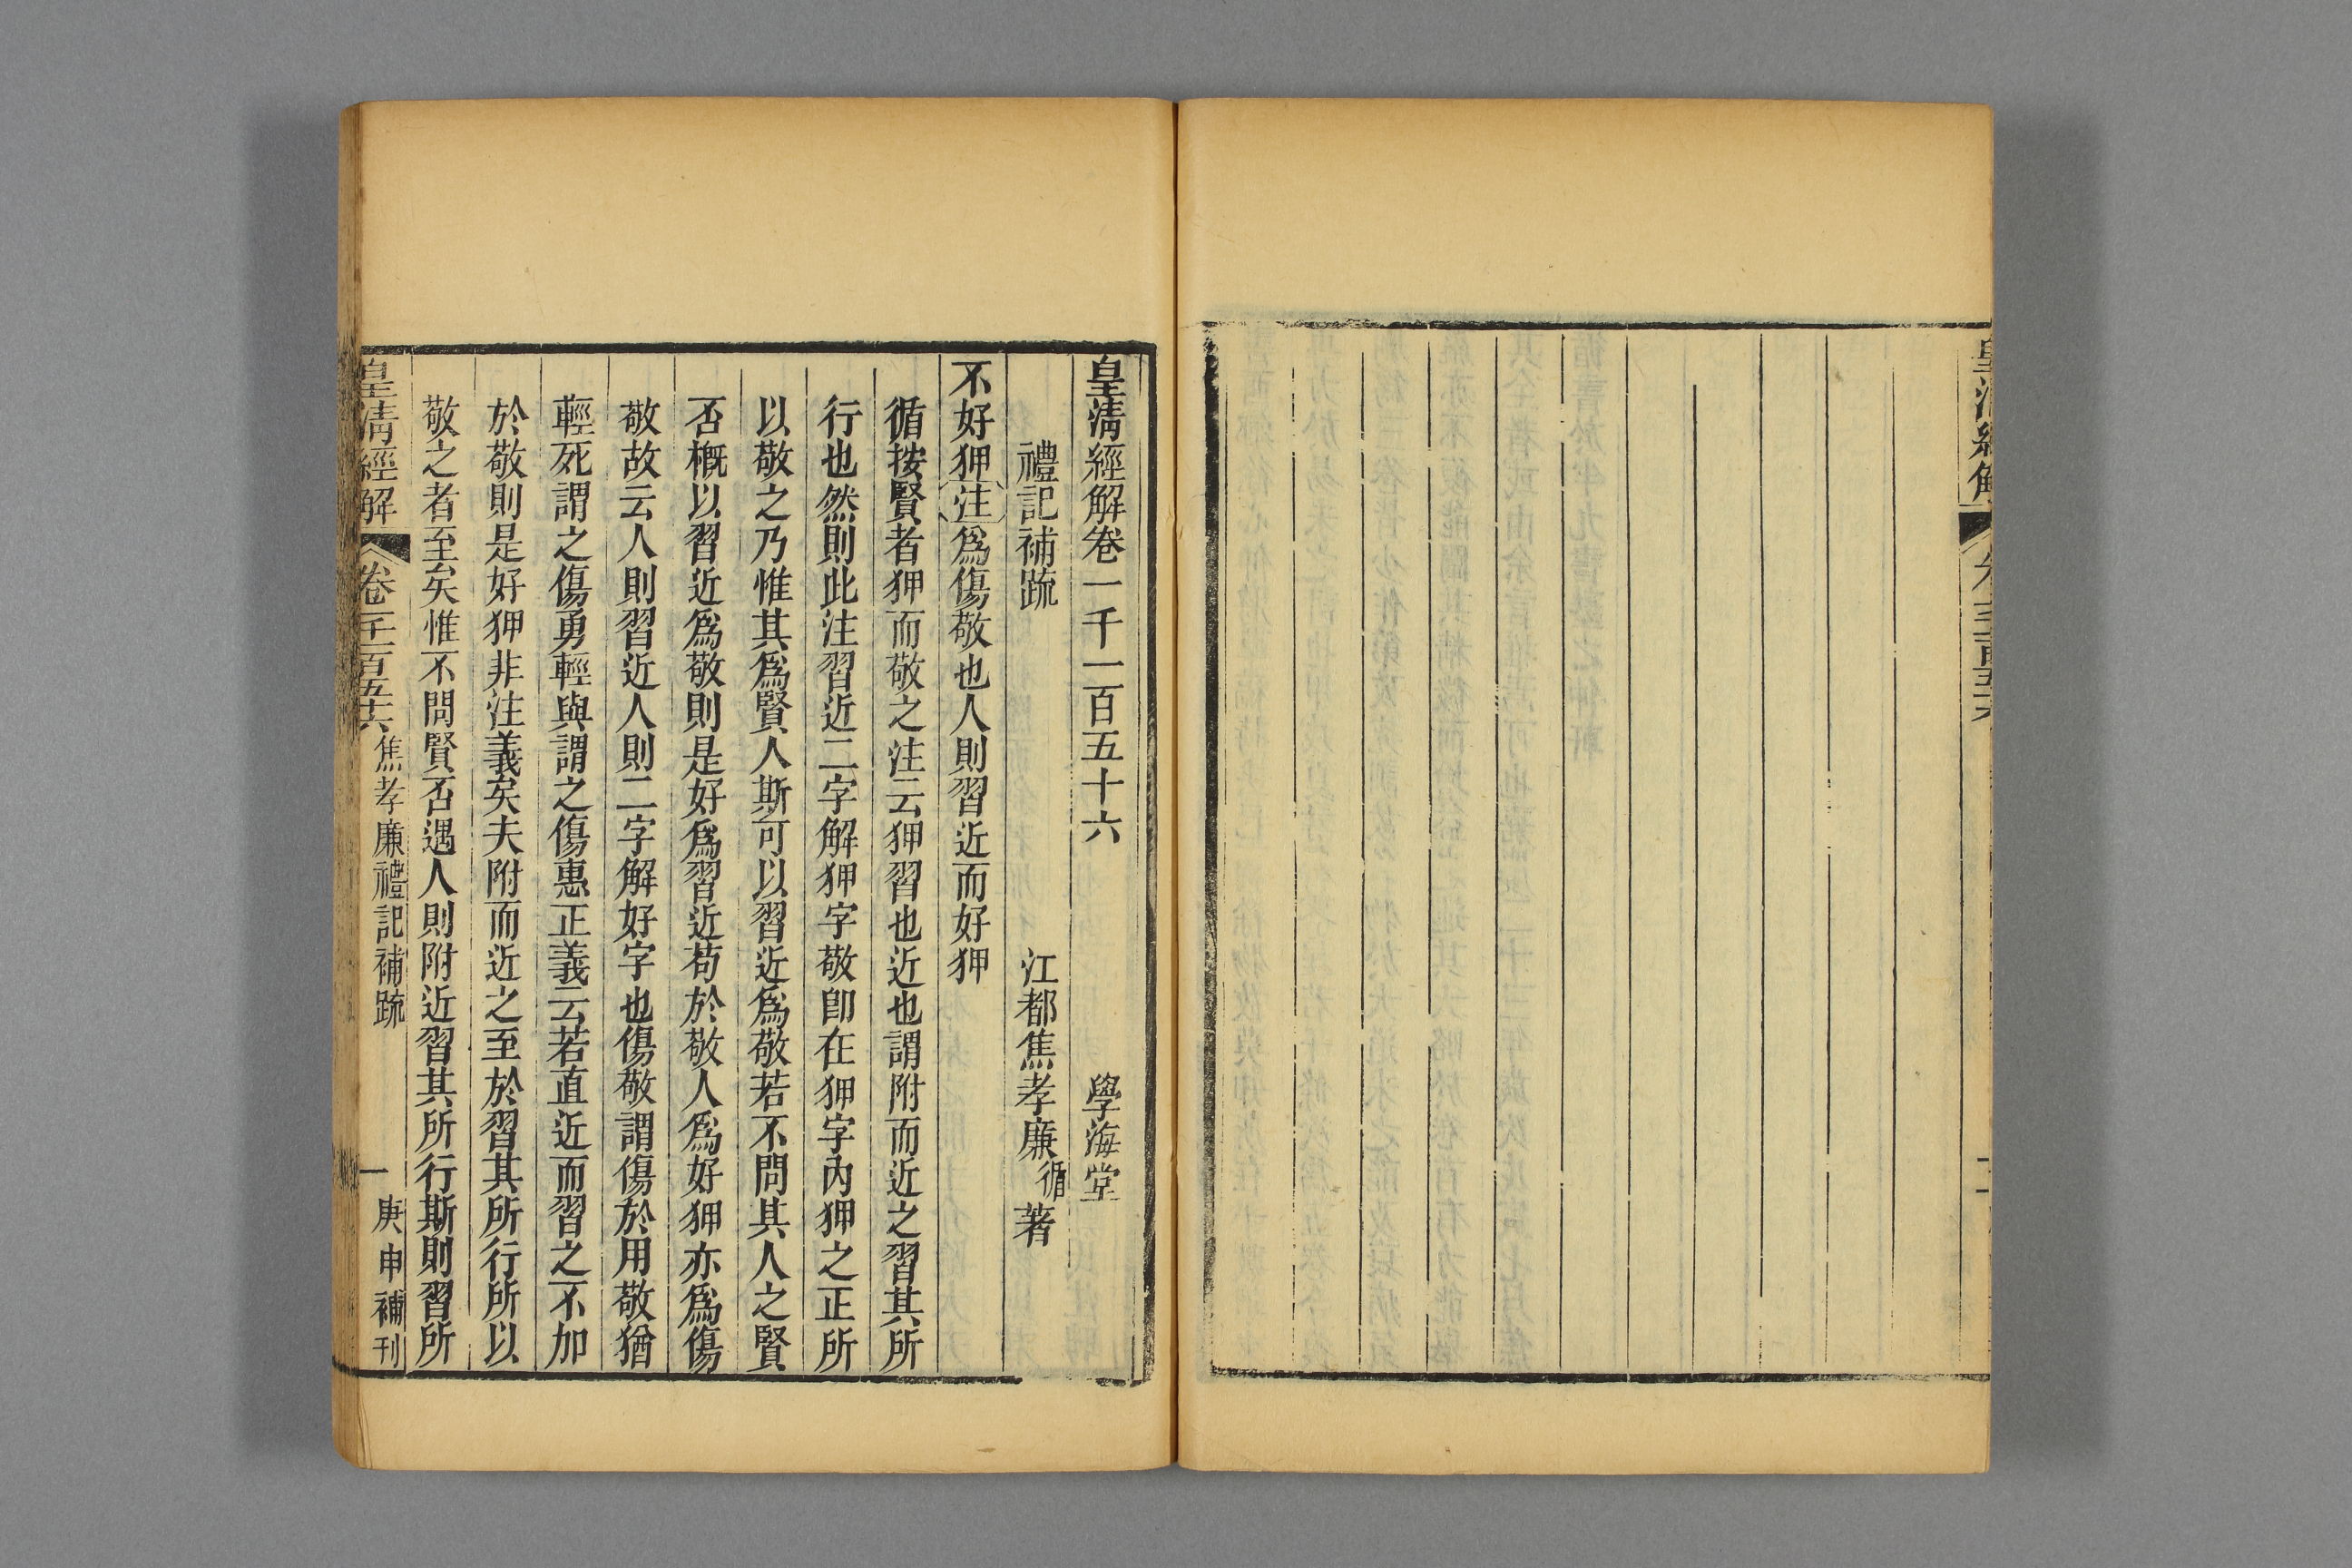 皇清經解卷一千一百五十六 學海堂
禮記補疏 江都焦孝廉循著
不好狎注爲傷敬也人則習近而好狎
循按賢者狎而敬之注云狎習也近也謂附而近之習其所
行也然則此注習近二字解狎字敬卽在狎字內狎之正所
以敬之乃惟其爲賢人斯可以習近爲敬若不問其人之賢
否槪以習近爲敬則是好爲習近苟於敬人爲好狎亦爲傷
敬故云人則習近人則二字解好字也傷敬謂傷於用敬猶
輕死謂之傷勇輕與謂之傷惠正義云若直近而習之不加
於敬則是好狎非注義矣夫附而近之至於習其所行所以
敬之者至矣惟不問賢否遇人則附近習其所行斯則習所
皇清經解 卷一千一百五十六 焦孝廉禮記補疏 一 庚申補刊